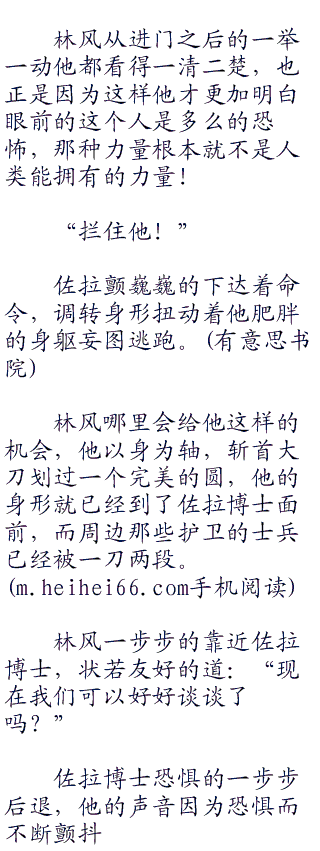 林风从进门之后的一举
一动他都看得一清二楚，也
正是因为这样他才更加明白
眼前的这个人是多么的恐
怖，那种力量根本就不是人
类能拥有的力量！
“拦住他！”
佐拉颤巍巍的下达着命
令，调转身形扭动着他肥胖
的身躯妄图逃跑。(有意思书
院)
林风哪里会给他这样的
机会，他以身为轴，斩首大
刀划过一个完美的圆，他的
身形就已经到了佐拉博士面
前，而周边那些护卫的士兵
已经被一刀两段。
(m.heihei66.com手机阅读)
林风一步步的靠近佐拉
博士，状若友好的道：“现
在我们可以好好谈谈了
吗？”
佐拉博士恐惧的一步步
后退，他的声音因为恐惧而
不断颤抖